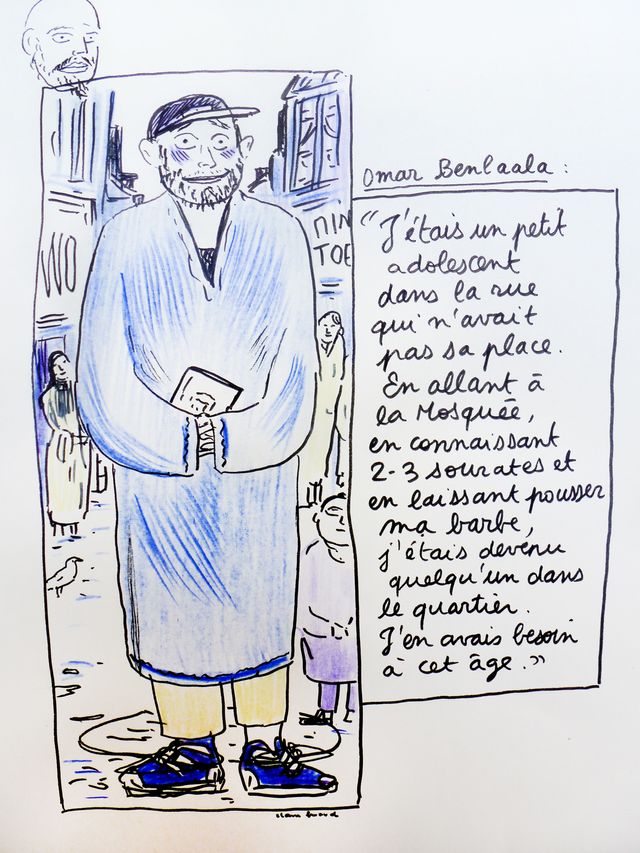 Omar Benlaala :
"J'étais un petit
adolescent
dans la rue
qui n'avait
pas sa place.
En allant à
la Mosquée,
en connaissant
2-3 sourates et
en laissant pousser
ma barbe,
j'étais devenu
quelqu'un dans
le quartier.
J'en avais besoin
à cet âge."
WO
NIN
TOE